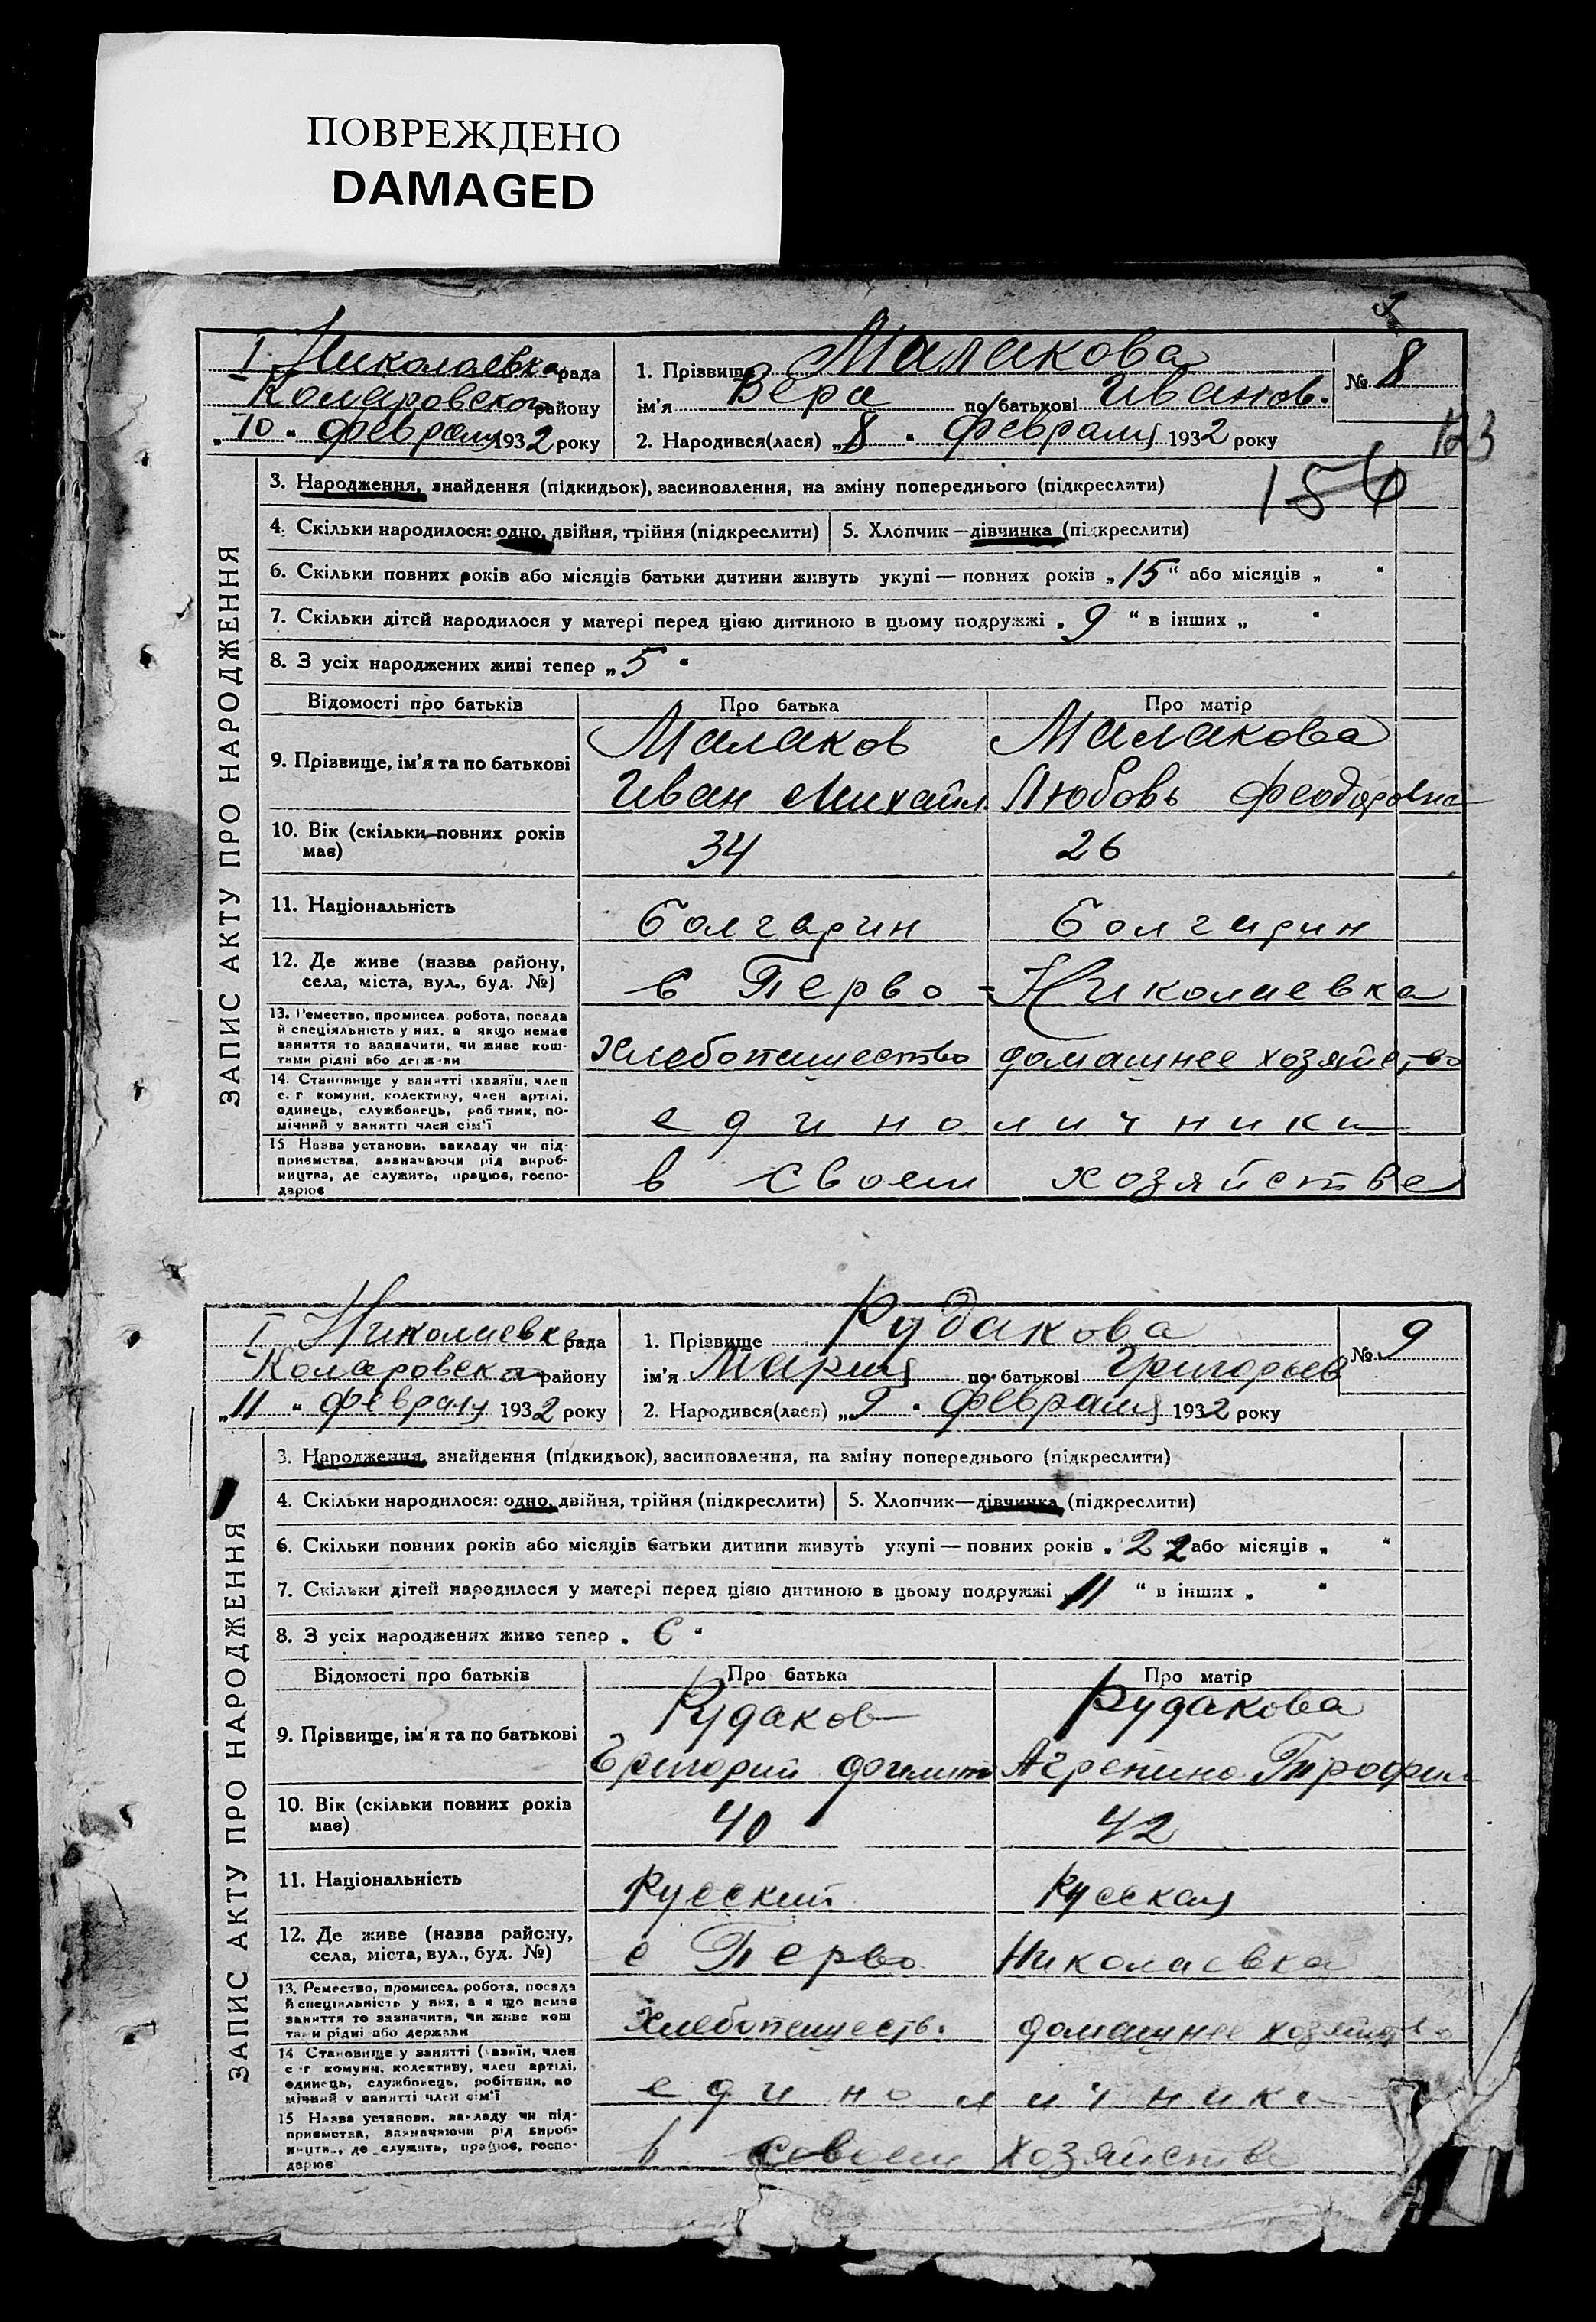 ПОВРЕЖДЕНО
DAMAGED
I Николаевка рада
Коларовского району
„10“ февраля 1932 року
1. Прізвище Малакова
ім'я Вера по батькові Иванов.
2. Народився(лася) „8“ февраля 1932 року
№ 8
123
156
ЗАПИС АКТУ ПРО НАРОДЖЕННЯ
3. Народження, знайдення (підкидьок), засиновлення, на зміну попереднього (підкреслити)
4. Скільки народилося: одно, двійня, трійня (підкреслити) 5. Хлопчик—дівчинка (підкреслити)
6. Скільки повних років або місяців батьки дитини живуть укупі — повних років „15“ або місяців „ “
7. Скільки дітей народилося у матері перед цією дитиною в цьому подружжі „9“ в інших „ “
8. З усіх народжених живі тепер „5“
Відомості про батьків Про батька Про матір
9. Прізвище, ім'я та по батькові
Малаков Малакова
Иван Михайл Любовь Феодоровна
10. Вік (скільки повних років
має)
34 26
11. Національність
болгарин болгарин
12. Де живе (назва району,
села, міста, вул., буд. №)
с Перво-Николаевка
13. Ремество, промисел. робота, посада
й спеціяльність у них, а якщо немає
заняття то зазначити, чи живе кош-
тами рідні або держави
Хлебопашество домашнее хозяйство
14. Становище у занятті (хазяїн, член
с.-г комуни, колективу, член артілі,
одинець, службовець, робітник, по-
мічний у занятті член сім'ї
единоличники
15 Назва установи, закладу чи під-
приємства, зазначаючи рід вироб-
ництва, де служить, працює, госпо-
дарює
в своем хозяйстве
I Николаевка рада
Коларовского району
„11“ февраля 1932 року
1. Прізвище Рудакова
ім'я Мария по батькові Григорьев
2. Народився(лася) „9“ февраля 1932 року
№ 9
ЗАПИС АКТУ ПРО НАРОДЖЕННЯ
3. Народження, знайдення (підкидьок), засиновлення, на зміну попереднього (підкреслити)
4. Скільки народилося: одно, двійня, трійня (підкреслити) 5. Хлопчик—дівчинка (підкреслити)
6. Скільки повних років або місяців батьки дитини живуть укупі — повних років „22 або місяців „ “
7. Скільки дітей народилося у матері перед цією дитиною в цьому подружжі „11“ в інших „ “
8. З усіх народжених живе тепер „6“
Відомості про батьків Про батька Про матір
9. Прізвище, ім'я та по батькові
Рудаков Рудакова
Григорий Агрепина Трофим
10. Вік (скільки повних років
має)
40 42
11. Національність
Русский Русская
12. Де живе (назва району,
села, міста, вул., буд. №)
с Перво Николаевка
13. Ремество, промисел. робота, посада
й спеціяльність у них, а якщо немає
заняття то зазначити, чи живе кош
тами рідні або держави
Хлебопашеств. домашнее хозяйство
14 Становище у занятті (хазяїн, член
с-г комуни, колективу, член артілі,
одинець, службовець, робітник, по
мічний у занятті член сім'ї
единолични­ки
15 Назва установи, закладу чи під-
приємства, зазначаючи рід вироб-
ництва, де служить, працює, госпо-
дарює
в своем хозяйстве